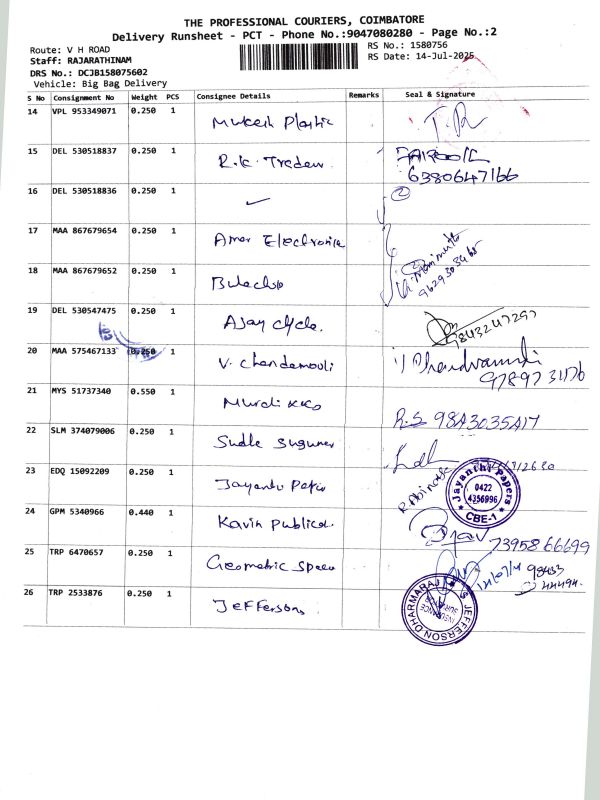 THE PROFESSIONAL COURIERS, COIMBATORE
Delivery Runsheet - PCT - Phone No.:9047080280 - Page No.:2
Route: V H ROAD
RS No.: 1580756
Staff: RAJARATHINAM
RS Date: 14-Jul-2025
DRS No.: DCJB158075602
Vehicle: Big Bag Delivery
S No Consignment No Weight PCS Consignee Details Remarks Seal & Signature
14 VPL 953349071 0.250 1 Mukesh Plastic
15 DEL 530518837 0.250 1 R.K. Traders 6380647166
16 DEL 530518836 0.250 1 2
17 MAA 867679654 0.250 1 Amar Electronics
18 MAA 867679652 0.250 1
19 DEL 530547475 0.250 1 Ajay Cycle. 9843247297
20 MAA 575467133 0.250 1 V. Chandamouli
21 MYS 51737340 0.550 1 R.S 9843035417
22 SLM 374079006 0.250 1
23 EDQ 15092209 0.250 1 Jayanthi Jayanthi Papers 0422 4356996 CBE-1
24 GPM 5340966 0.440 1 Kavin 7395866699
25 TRP 6470657 0.250 1 Geometric
26 TRP 2533876 0.250 1 Jeffersons JEFFERSON DHARMARAJ INSURANCE